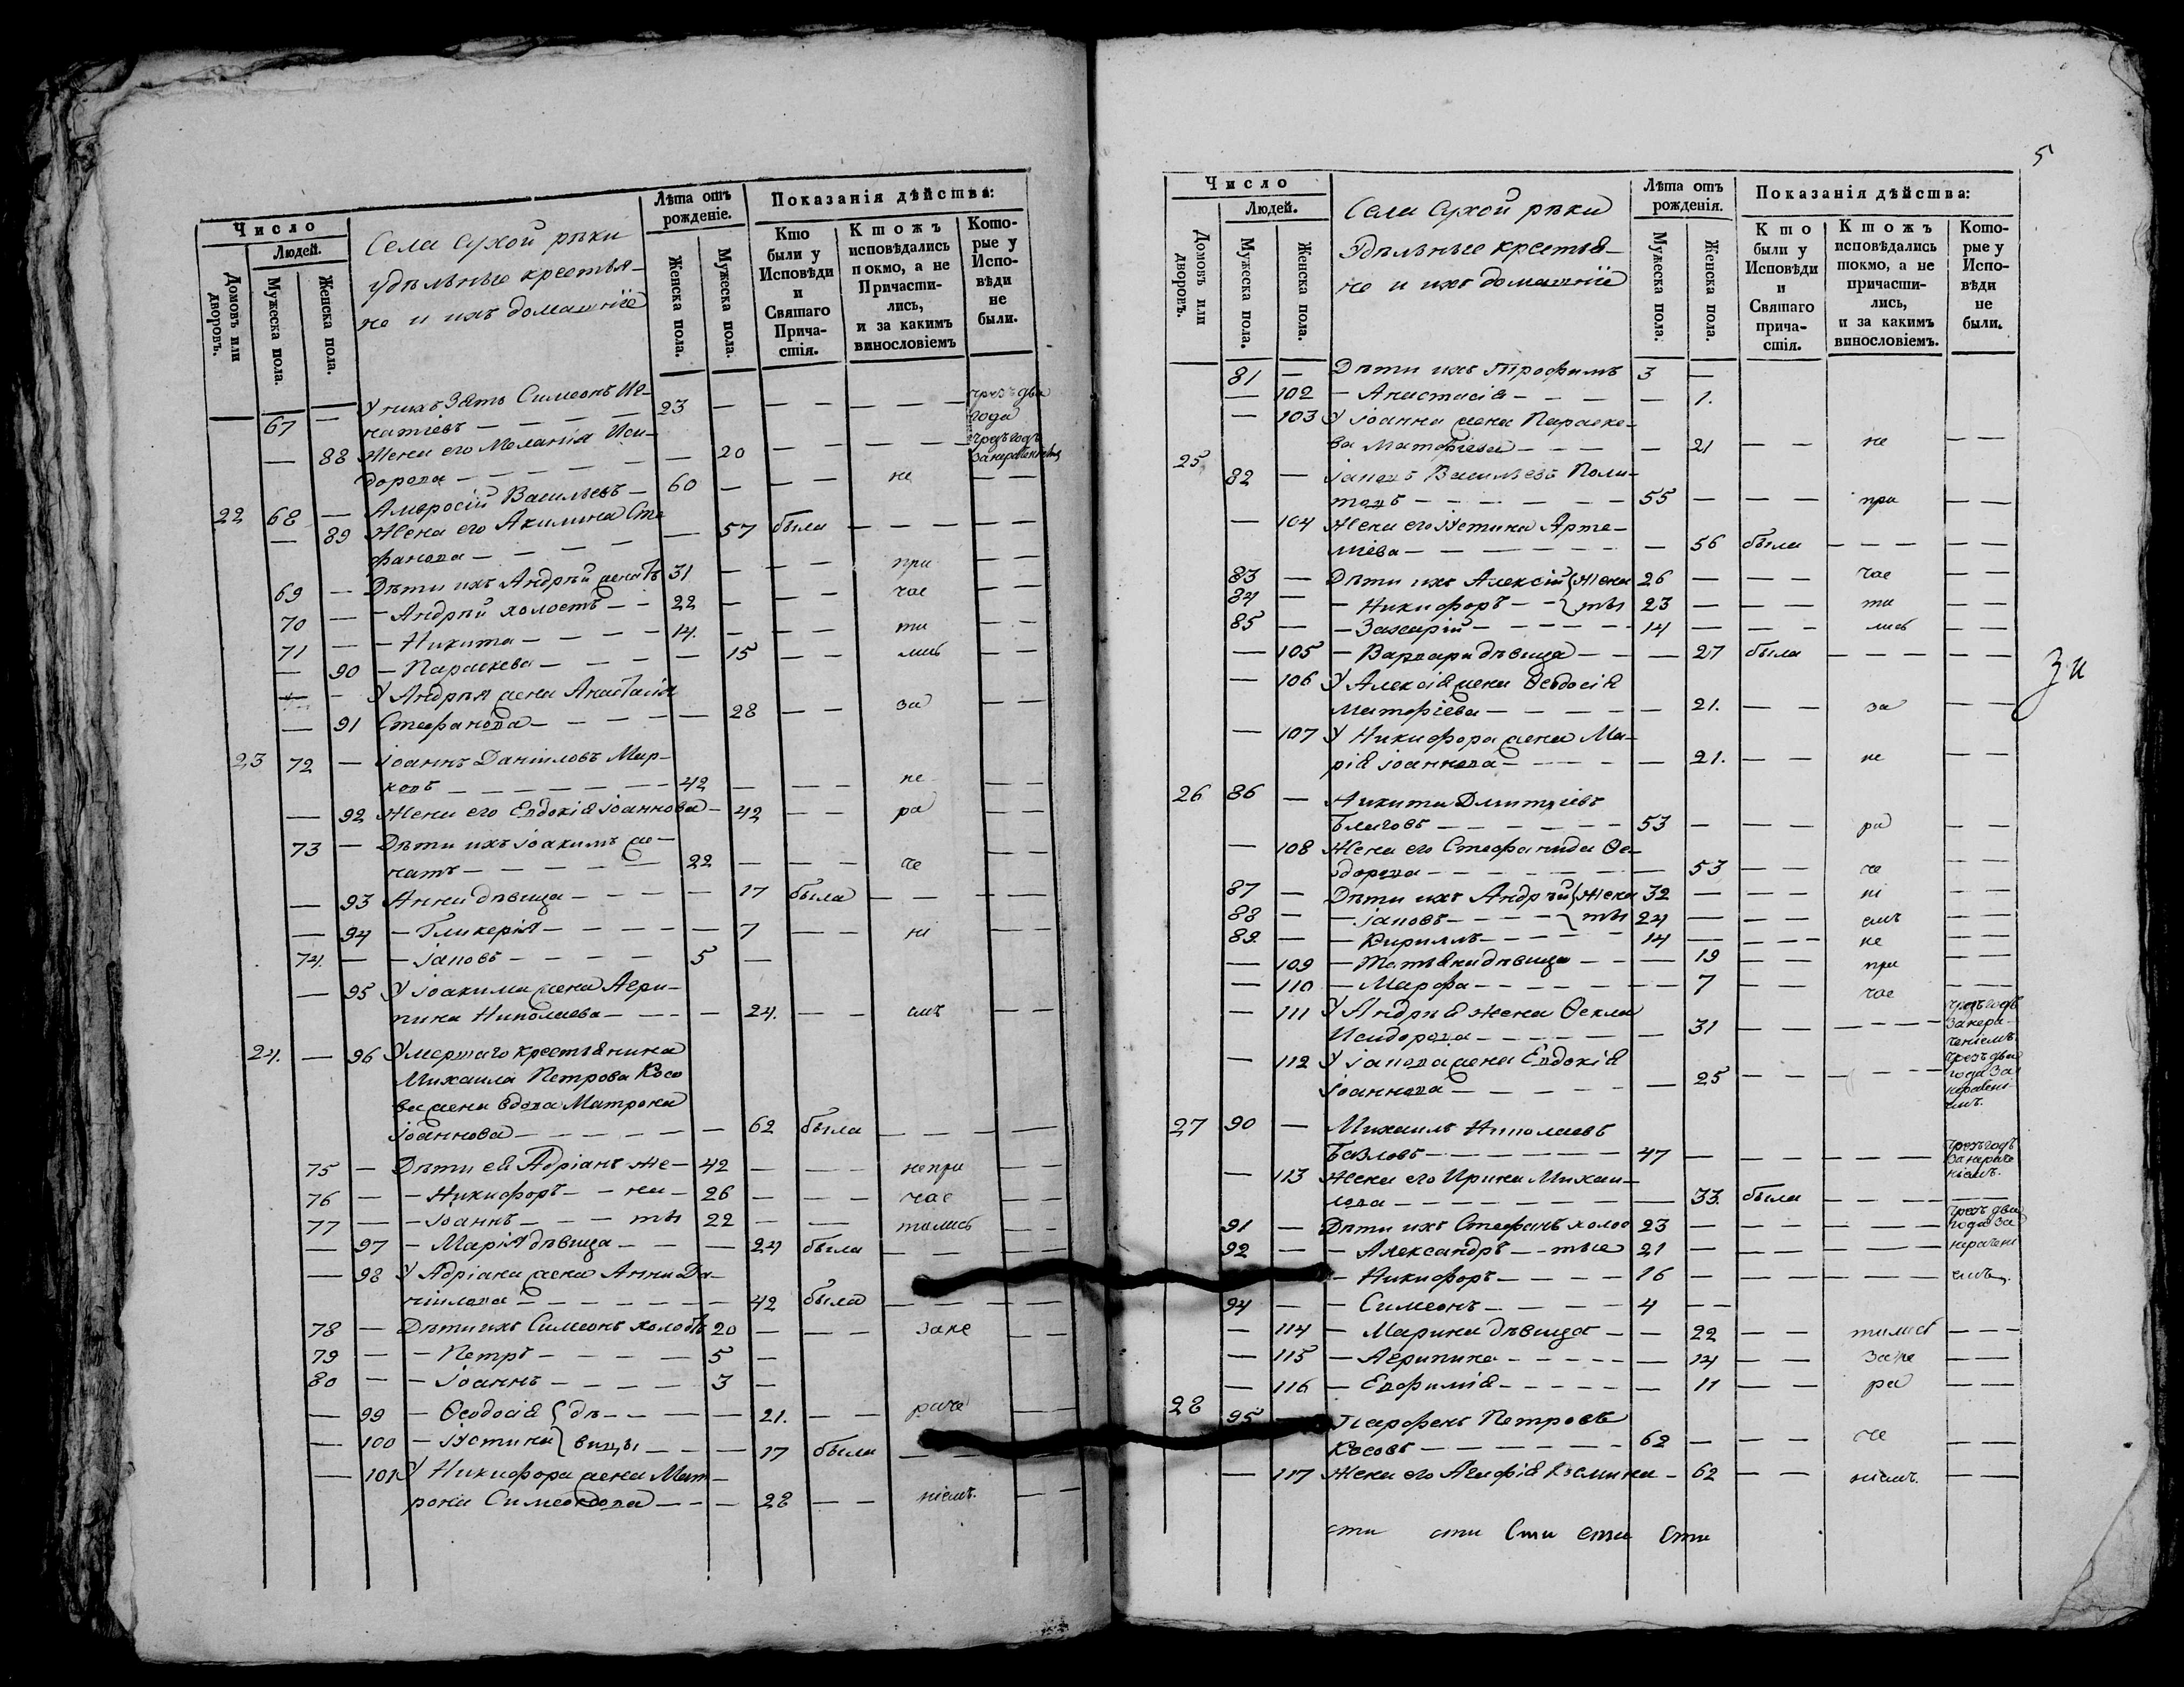 Число
Людей.
Домовъ или дворовъ.
Мужеска пола.
Женска пола.
Села Сухой рѣки
удѣльные крестья-
не и ихъ домашнiе
Лѣта отъ рожденiе.
Женска пола.
Мужеска пола.
Показанiя дѣйства:
Кто были у Исповѣди и Святаго Прича-стiя.
Ктожъ исповѣдались покмо, а не Причасти-лись, и за какимъ винословiемъ
Кото-рые у Испо-вѣди не были.
67 — У нихъ Зять Симеонъ Иг-
натiевъ — — — — 23 — — — — — — чрезъ два года
— 88 Жена его Меланiя Иси-
дорова — — — — — 20 — — — — — чрезъ годъ
22 68 — Амвросiй Васильевъ — 60 — — — не — —
— 89 Жена его Акилина Сте-
фанова — — — — — 57 была — — — — —
69 — Дѣти ихъ Андрѣй женатъ 31 — — — при — —
70 — — Андрѣй холостъ — — 22 — — — час — —
71 — — Никита — — — — 14. — — — ти — —
— 90 — Параскева — — — — 15 — — лись — —
— — У Андрѣя жена Анастасiя
— 91 Стефанова — — — — — 28 — — за — —
23 72 — Iоаннъ Данiиловъ Мар-
ковъ — — — — — — 42 — — — не — —
— 92 Жена его Евдокiя Iоаннова — 42 — — ра — —
73 — Дѣти ихъ Iоакимъ же-
натъ — — — — — 22 — — — че — —
— 93 Анна дѣвица — — — — 17 была — — — —
— 94 — Гликерiя — — — — — 7 — — нi — —
74. — — Iаковъ — — — — 5 —
— 95 У Iоакима жена Агри-
пина Николаева — — — — 24. — — емъ — —
24. — 96 Умершаго крестьянина
Михаила Петрова Косо
ва жена вдова Матрона
Iоаннова — — — — — — 62 была — — — —
75 — Дѣти ея Адрiанъ же- 42 — — — непри — —
76 — — Никифоръ — — на — 26 — — — час — —
77 — — Iоаннъ — — — ты 22 — — тились — —
— 97 — Марiя дѣвица — — — 24 была — — — —
— 98 У Адрiана жена Анна Да-
нiилова — — — — — — — 42 была — — — —
78 — Дѣти ихъ Симеонъ холостъ 20 — — — зане — —
79 — — Петръ — — — — 5 —
80 — — Iоаннъ — — — — 3 —
— 99 — Ѳеодосiя { дѣ — — — — 21. — — раче — —
— 100 — Устина } вицы — — — — 17 была — — —
— 101 У Никифора жена Мат-
рона Симеонова — — — 28 — — нiемъ. — —
5
Число
Людей.
Домовъ или дворовъ.
Мужеска пола.
Женска пола.
Села Сухой рѣки
Удѣльные крестья-
не и ихъ домашнiе
Лѣта отъ рожденiя.
Мужеска пола.
Женска пола.
Показанiя дѣйства:
Кто были у Исповѣди и Святаго прича-стiя.
Ктожъ исповѣдались токмо, а не причасти-лись, и за какимъ винословiемъ.
Кото-рые у Испо-вѣди не были.
81 — Дѣти ихъ Трофимъ 3 —
— 102 — Анастасiя — — — — — 1.
— 103 У Iоанна жена Параске-
ва Матѳiева — — — — — 21 — — не — —
25 82 — Iаковъ Васильевъ
— — — — — — 55 — — — при — —
— 104 Жена его Устина Арте-
мiева — — — — — — — 56 была — — — — —
83 — Дѣти ихъ Алексiй { Жена 26 — — — час — —
84 — — Никифоръ — — } ты 23 — — — ти — —
85 — — Захарiй — — — — — 14 — — — лись — —
— 105 — Варвара дѣвица — — — 27 была — — — — —
— 106 У Алексiя жена Ѳеодосiя
Матѳiева — — — — — — 21. — — за — —
— 107 У Никифора жена Ма-
рiя Iоаннова — — — — — 21. — — не — —
26 86 — Никита Дмитрiевъ
— — — — — — 53 — — — ра — —
— 108 Жена его Стефанида Ѳе-
дорова — — — — — — — 53 — — че — —
87 — Дѣти ихъ Андрѣй { Жена 32 — — — нi — —
88 — — Iаковъ — — — — } ты 24 — — — емъ — —
89. — — Кириллъ — — — — — 14 — — — не — —
— 109 — Татьяна дѣвица — — — 19 — — при — —
— 110 — Марѳа — — — — — — 7 — — час — —
— 111 У Андрѣя жена Ѳекла
Исидорова — — — — — — 31 — — — — — чрезъ годъ Занера-ченiемъ
— 112 У Iакова жена Евдокiя
Iоаннова — — — — — — 25 — — — — — чрезъ два года За нерачені емъ.
27 90 — Михаилъ Николаевъ
— — — — — — 47 — — — — — чрезъ годъ Занераче нiемъ.
— 113 Жена его Ирина Михаи-
лова — — — — — — — 33. была — — — —
91 — Дѣти ихъ Стефанъ холос 23 — — — — — — чрезъ два года За
92 — — Александръ — — тые 21 — — — — — — нерачені
— Никифоръ — — — — 16 — — — — — — емъ.
94 — — Симеонъ — — — — 4 — —
— 114 — Марина дѣвица — — 22 — — тились — — —
— 115 — Агрипина — — — — — — 14 — — Зане — —
— 116 — Евфимiя — — — — — — 11 — — ра — —
28 95 — Парфенъ Петровъ
Косовъ — — — — — — 62 — — — че — —
— 117 Жена его Агафiя Космина — 62 — — нiемъ. — —
сти сти Сти сти Сти